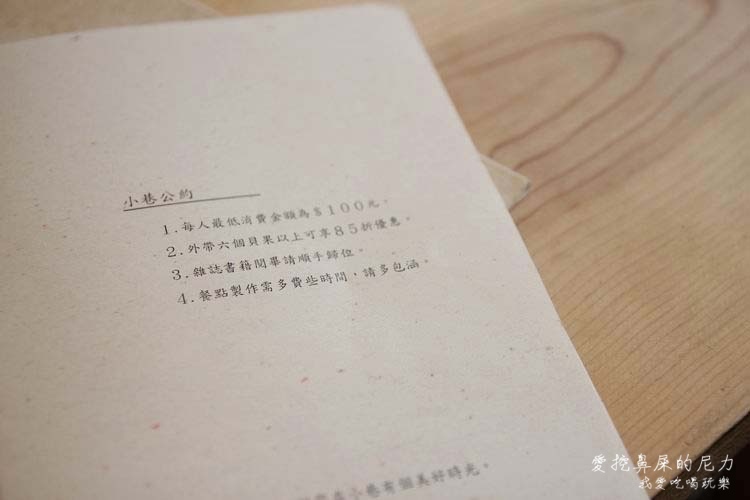 小巷公約
1.每人最低消費金額為$100元。
2.外帶六個貝果以上可享85折優惠。
3.雜誌書籍閱畢請順手歸位。
4.餐點製作需多費些時間，請多包涵。
在小巷有個美好時光。
愛挖鼻屎的尼力
我愛吃喝玩樂